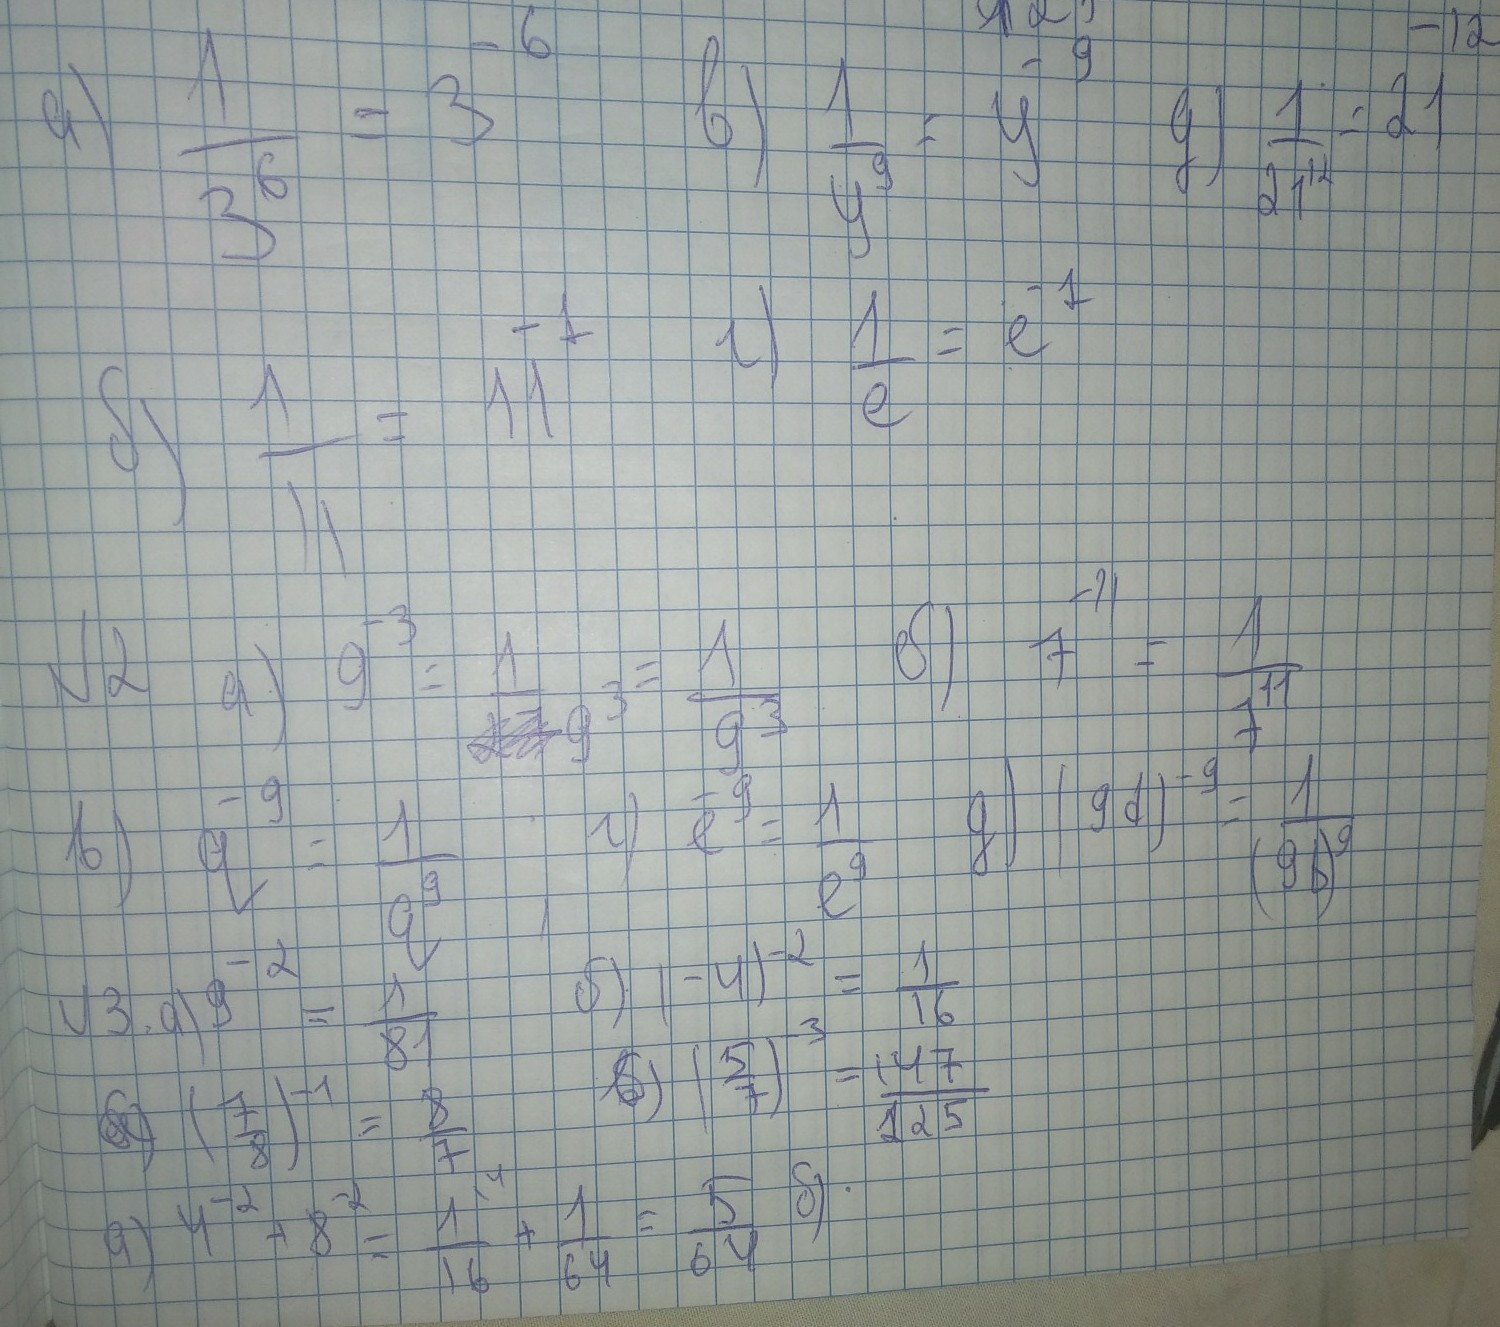 а) 1/3^6 = 3^-6 в) 1/y^9 = y^-9 д) 1/21^12 = 21^-12
б) 1/11 = 11^-1 г) 1/e = e^-1
N2 а) 9^-3 = 1/9^3 = 1/9^3 б) 7^-11 = 1/7^11
в) q^-9 = 1/q^9 г) e^-9 = 1/e^9 д) (9d)^-9 = 1/(9b)^9
N3. а) 9^-2 = 1/81 б) (-4)^-2 = 1/16
(7/8)^-1 = 8/7 (5/7)^-3 = 147/125
а) 4^-2 + 8^-2 = 1/16 ^4 + 1/64 = 5/64 б)